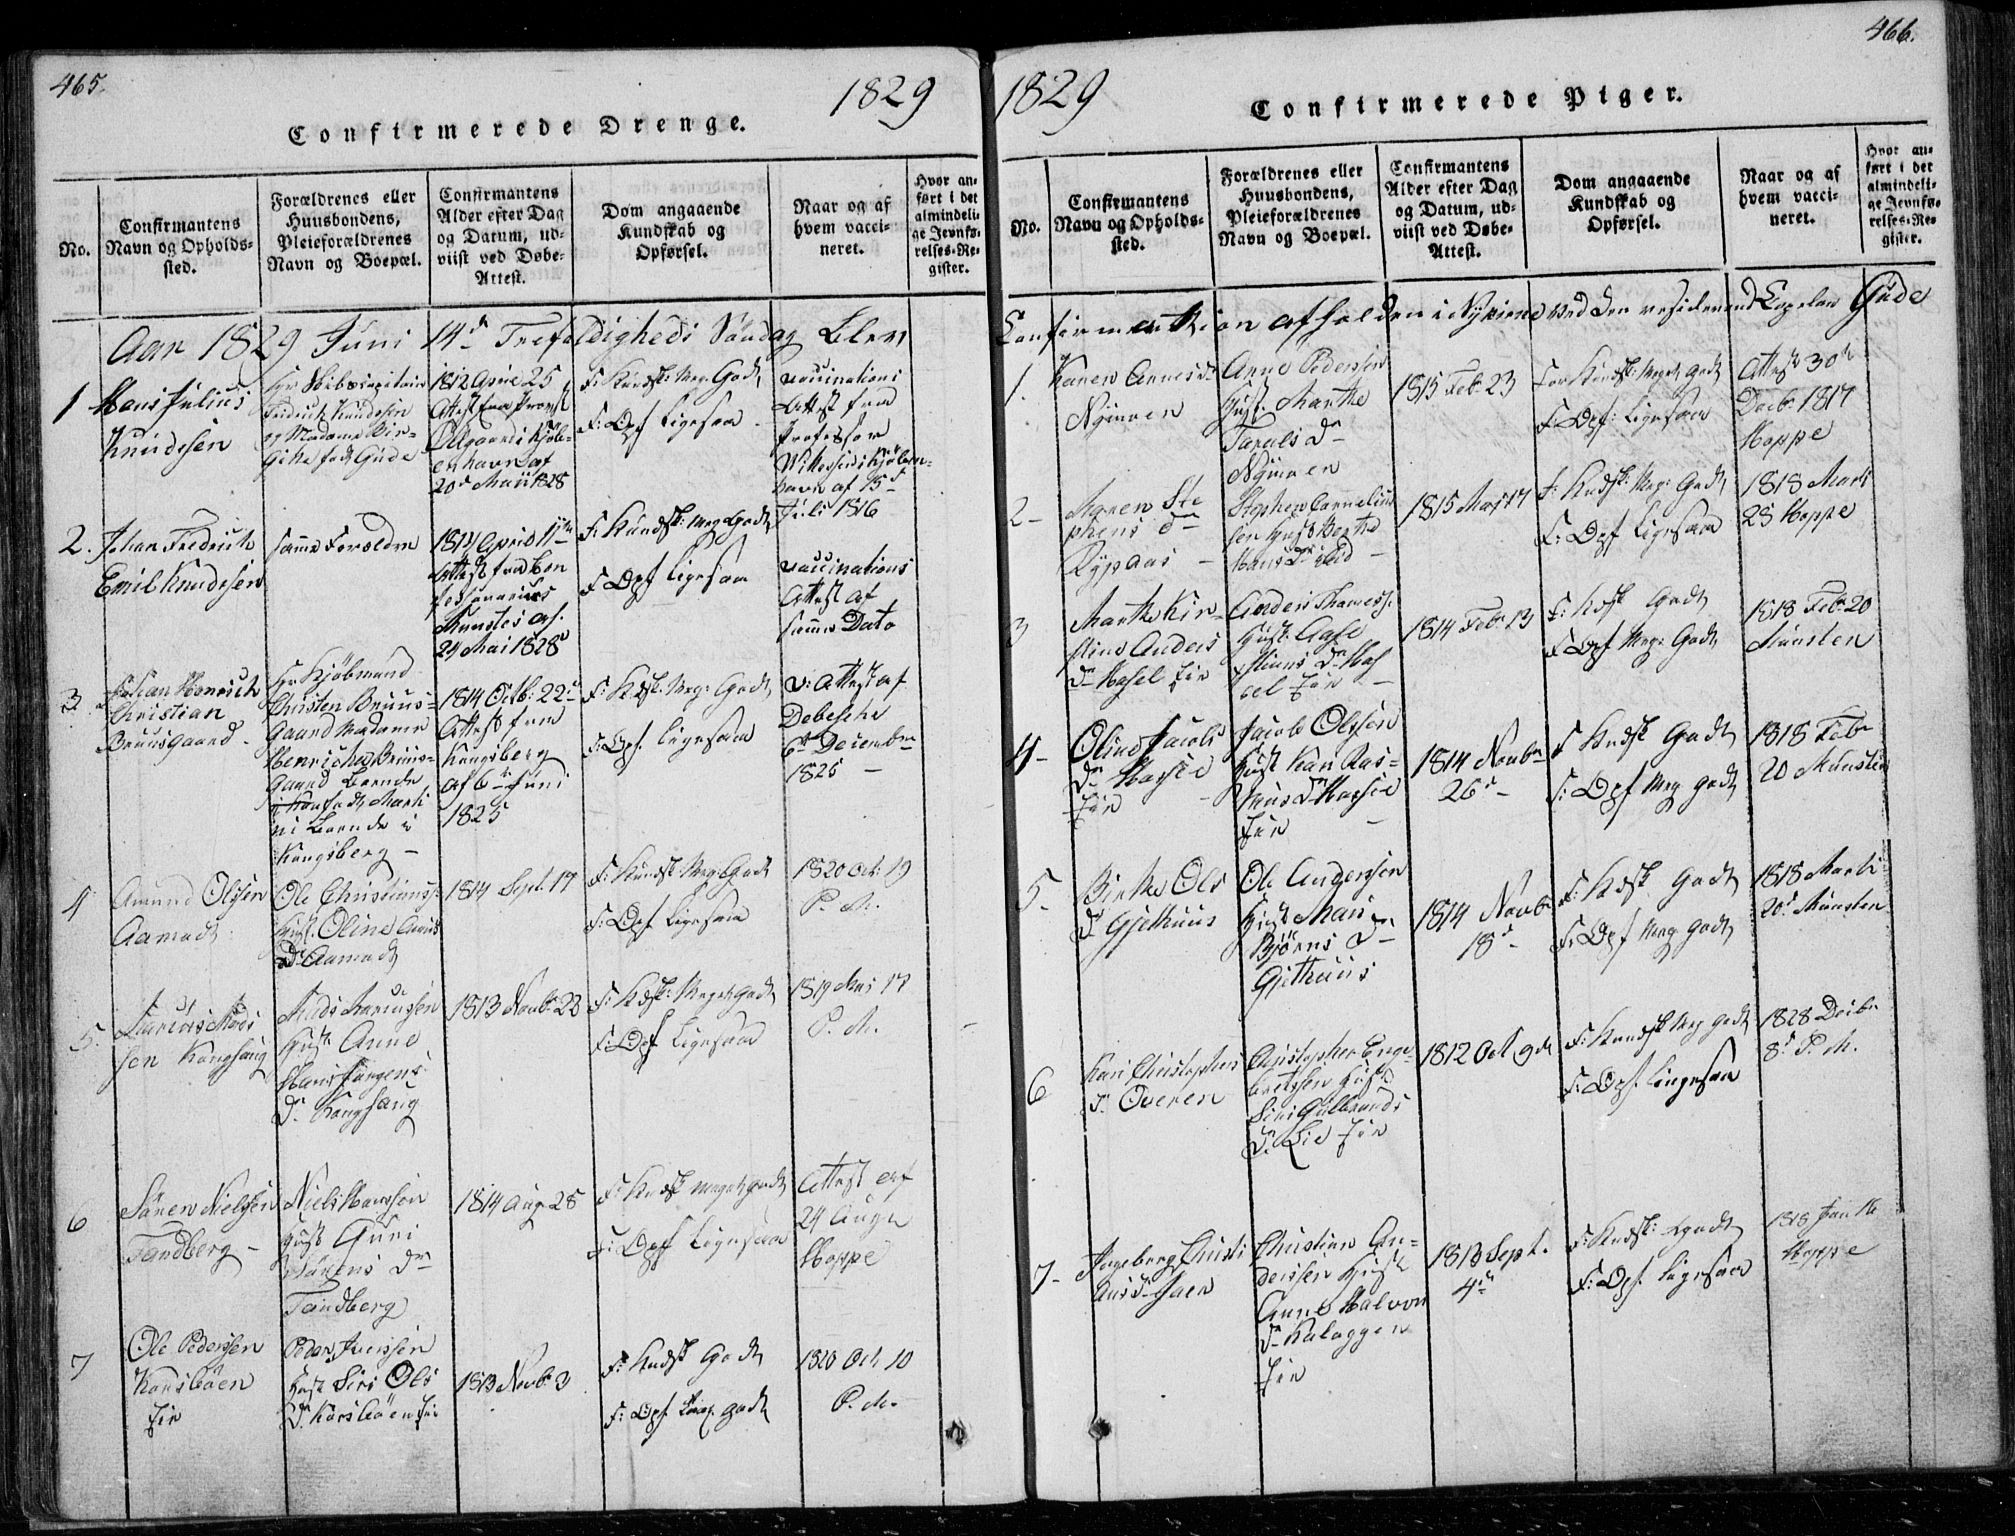 465.
1829
Confirmerede Drenge.
No.
Confirmantens
Navn og Opholds-
sted.
Forældrenes eller
Huusbondens,
Pleieforældrenes
Navn og Boepæl.
Confirmantens
Alder efter Dag
og Datum, ud-
viist ved Døbe-
Attest.
Dom angaaende
Kundskab og
Opførsel.
Naar og af
hvem vacci-
neret.
Hvor an-
ført i det
almindeli-
ge Jevnfø-
relses-Re-
gister.
Aar 1829 Juni 14de Trefoldigheds Søndag blev
1
Hans Julius
Knudsen
Fredrich Knudsen
og Madame Bir-
githe fød Gude
1812 April 25
Attest fra Provst
i Kjøb-
enhavn af
20de Maii 1828
F: Kundsk: Meg: Godt
F: Opf Ligesaa
Vaccinations
Attest fra
Professor
i Kjøben-
havn af 15de
Juli 1816
2.
Johan Fredrich
Emil Knudsen
samme Foreldre
1814 April 11te
Attest fra
Munster af
24 Mai 1828
F: Kundsk: Meg Godt
F: Opf Ligesaa
Vaccinations
Attest af
samme Dato
3
Johan Henrich
Christian
Bruusgaard
Hr Kjøbmand
Christen Bruus-
gaard Madame
Henriche Bruus-
gaard
Kongsberg
1814 Octb: 22de
Attest fra
Kongsberg
af 6te Juni
1825
F: Kdsk: Meg: Godt
F: Opf: Ligesaa
V: Attest af
6te Decembr
1825
4
Amund Olssen
Aamodt
Ole Christians:
Hust: Oline
Dr Aamodt
1814 Sept: 17
F: Kundsk: Meg: Godt
F: Opf Ligesaa
1820 Oct: 19
P. M.
5.
Laurens Mads
sen Kongsang
Mads Laurensen
Hust: Anne
Hans Jørgens
Dr Kongsang
1813 Novb: 23
F: Kdsk: Meget godt
F: Opf Ligesaa
1819 Mai 17
P. M.
6
Sören Nielsen
Tandberg
Niels Hanssen
Hust Guri
Sörens Dr
Tandberg
1814 Aug 28
F: Kndsk meget godt
F: Opf Ligesaa
Attest af
24 Aug
Hoppe
7
Ole Pederssen
Korsböen
Eier
Peder Iverssen
Hust Siri Ols
Dr Korsböen Eier
1813 Novb: 3
F: Kndsk Godt
F: Opf godt
1820 Oct 10
P. M.
466.
1829
Confirmerede Piger.
No.
Confirmantens
Navn og Opholds-
sted.
Forældrenes eller
Huusbondens,
Pleieforældrenes
Navn og Boepæl.
Confirmantens
Alder efter Dag
og Datum, ud-
viist ved Døbe-
Attest.
Dom angaaende
Kundskab og
Opførsel.
Naar og af
hvem vacci-
neret.
Hvor an-
ført i det
almindeli-
ge Jevnfø-
relses-Re-
gister.
Confirmation afholden i Nykirke ved den residerende Capelan Gude
1.
Karen Arnes Dr
Nymoen
Arne Pederssen
Hust: Marthe
Dr
Nymoen
1815 Feb: 23
For Kundsk: Meget godt
F: Opf: Ligesaa
Attest 30te
Decb: 1817
Hoppe
2
Maren Ste
phens Dr
Rypaas
Stephen Cornelius
sen Hust Berthe
Hans Dr
1815 Mai 17
F: Kndsk: Meg: Godt
F: Opf Ligesaa
1818 Marts
28 Hoppe
3
Marthe Kir-
stine Anders
Dr Hasel Eier
Anders
Hust: Aase
Dr Has
sel Eier
1814 Feb: 13
F: Kdsk Godt
F Opf Meg: Godt
1818 Feb: 20
Munster
4
Oline Jacobs
Dr
Eier
Jacob Olssen
Hust Kari Ras-
mus Dr
Eier
1814 Novbr
26de
F Kndsk Godt
F: Opf Meg godt
1818 Febr
20 Munster
5.
Birthe Ols
Dr Gjethuus
Ole Anderssen
Hust Mari
Bjørns Dr
Gjethuus
1814 Novb:
18de
F: Kdsk Godt
F: Opf Meg godt
1818 Marts
20de Munster
6
Kari Christophers
Dr Overen
Christopher Enge-
bretssen Hust:
Siri Gulbrands
Dr Lie Eier
1812 Oct 9de
F: Kundsk Meg godt
F: Opf. Ligesaa
1828 Decbr
8de P. M.
7
Ingeborg Christi
ans Dr
Christian An-
derssen Hust
Anne Halvor
Dr
Eier
1813 Sept.
4de
F: Kndsk: Godt
F: Opf. Ligesaa
1818 Jan 16
Hoppe